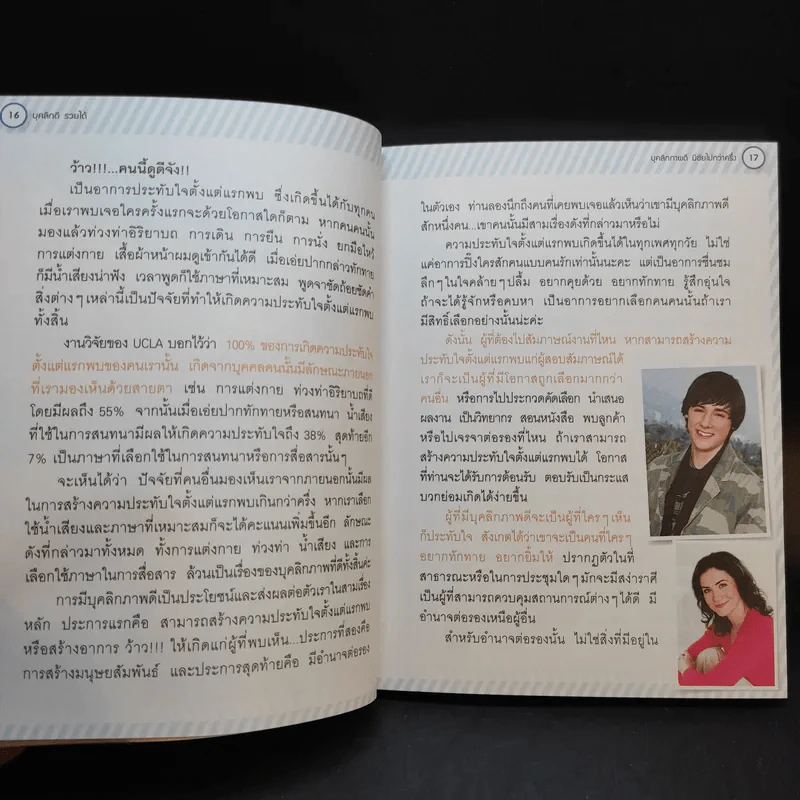 16 บุคลิกดี รวยได้
ว้าว!!!...คนนี้ดูดีจัง!!
เป็นอาการประทับใจตั้งแต่แรกพบ ซึ่งเกิดขึ้นได้กับทุกคน
เมื่อเราพบเจอใครครั้งแรกจะด้วยโอกาสใดก็ตาม หากคนคนนั้น
มองแล้วท่วงท่าอิริยาบถ การเดิน การยืน การนั่ง ยกมือไหว้
การแต่งกาย เสื้อผ้าหน้าผมดูเข้ากันได้ดี เมื่อเอ่ยปากกล่าวทักทาย
ก็มีน้ำเสียงน่าฟัง เวลาพูดก็ใช้ภาษาที่เหมาะสม พูดจาชัดถ้อยชัดคำ
สิ่งต่างๆ เหล่านี้เป็นปัจจัยที่ทำให้เกิดความประทับใจตั้งแต่แรกพบ
ทั้งสิ้น
งานวิจัยของ UCLA บอกไว้ว่า 100% ของการเกิดความประทับใจ
ตั้งแต่แรกพบของคนเรานั้น เกิดจากบุคคลคนนั้นมีลักษณะภายนอก
ที่เรามองเห็นด้วยสายตา เช่น การแต่งกาย ท่วงท่าอิริยาบถที่ดี
โดยมีผลถึง 55% จากนั้นเมื่อเอ่ยปากทักทายหรือสนทนา น้ำเสียง
ที่ใช้ในการสนทนามีผลให้เกิดความประทับใจถึง 38% สุดท้ายอีก
7% เป็นภาษาที่เลือกใช้ในการสนทนาหรือการสื่อสารนั้นๆ
จะเห็นได้ว่า ปัจจัยที่คนอื่นมองเห็นเราจากภายนอกนั้นมีผล
ในการสร้างความประทับใจตั้งแต่แรกพบเกินกว่าครึ่ง หากเราเลือก
ใช้น้ำเสียงและภาษาที่เหมาะสมก็จะได้คะแนนเพิ่มขึ้นอีก ลักษณะ
ดังที่กล่าวมาทั้งหมด ทั้งการแต่งกาย ท่วงท่า น้ำเสียง และการ
เลือกใช้ภาษาในการสื่อสาร ล้วนเป็นเรื่องของบุคลิกภาพที่ดีทั้งสิ้นค่ะ
การมีบุคลิกภาพดีเป็นประโยชน์และส่งผลต่อตัวเราในสามเรื่อง
หลัก ประการแรกคือ สามารถสร้างความประทับใจตั้งแต่แรกพบ
หรือสร้างอาการ ว้าว!!! ให้เกิดแก่ผู้ที่พบเห็น...ประการที่สองคือ
การสร้างมนุษยสัมพันธ์ และประการสุดท้ายคือ มีอำนาจต่อรอง
บุคลิกภาพดี มีชัยไปกว่าครึ่ง 17
ในตัวเอง ท่านลองนึกถึงคนที่เคยพบเจอแล้วเห็นว่าเขามีบุคลิกภาพดี
สักหนึ่งคน...เขาคนนั้นมีสามเรื่องดังที่กล่าวมาหรือไม่
ความประทับใจตั้งแต่แรกพบเกิดขึ้นได้ในทุกเพศทุกวัย ไม่ใช่
แค่อาการปิ๊งใครสักคนแบบคนรักเท่านั้นนะคะ แต่เป็นอาการชื่นชม
ลึกๆ ในใจคล้ายๆ ปลื้ม อยากคุยด้วย อยากทักทาย รู้สึกอุ่นใจ
ถ้าจะได้รู้จักหรือคบหา เป็นอาการอยากเลือกคนคนนั้นถ้าเรา
มีสิทธิ์เลือกอย่างนั้นน่ะค่ะ
ดังนั้น ผู้ที่ต้องไปสัมภาษณ์งานที่ไหน หากสามารถสร้างความ
ประทับใจตั้งแต่แรกพบแก่ผู้สอบสัมภาษณ์ได้
เราก็จะเป็นผู้ที่มีโอกาสถูกเลือกมากกว่า
คนอื่น หรือการไปประกวดคัดเลือก นำเสนอ
ผลงาน เป็นวิทยากร สอนหนังสือ พบลูกค้า
หรือไปเจรจาต่อรองที่ไหน ถ้าเราสามารถ
สร้างความประทับใจตั้งแต่แรกพบได้ โอกาส
ที่ท่านจะได้รับการต้อนรับ ตอบรับเป็นกระแส
บวกย่อมเกิดได้ง่ายขึ้น
ผู้ที่มีบุคลิกภาพดีจะเป็นผู้ที่ใครๆ เห็น
ก็ประทับใจ สังเกตได้ว่าเขาจะเป็นคนที่ใครๆ
อยากทักทาย อยากยิ้มให้ ปรากฏตัวในที่
สาธารณะหรือในการประชุมใดๆ มักจะมีสง่าราศี
เป็นผู้ที่สามารถควบคุมสถานการณ์ต่างๆ ได้ดี มี
อำนาจต่อรองเหนือผู้อื่น
สำหรับอำนาจต่อรองนั้น ไม่ใช่สิ่งที่มีอยู่ใน